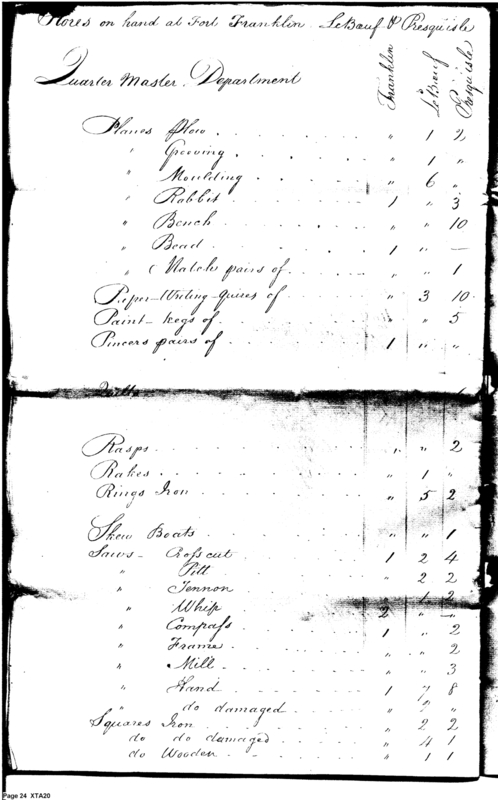 Stores on hand at Fort Franklin LeBœuf & Presqu'isle
Quarter Master. Department Franklin LeBœuf Presqu'isle
Planes plow . . . . . . . . . " 1 2
" Grooving . . . . . . . . . " 1 "
" Moulding . . . . . . . . . " 6 "
" Rabbit . . . . . . . . . 1 " 3
" Bench . . . . . . . . . " " 10
" Bead . . . . . . . . . 1 " —
" Match pairs of . . . . " " 1
Paper-Writing-quires of . . . . " 3 10
Paint-kegs of . . . . . . " " 5
Pincers pairs of . . . . . . 1 " "
Rasps . . . . . . . . . " " 2
Rakes . . . . . . . . . " 1 "
Rings Iron . . . . . . . . . " 5 2
Skew Boats . . . . . . . . . " " 1
Saws - Crosscut . . . . . . 1 2 4
" Pitt . . . . . . " 2 2
" Tennon . . . . . . " 1 2
" Whip . . . . . . 2 " —
" Compass . . . . . . 1 " 2
" Frame . . . . . . " " 2
" Mill . . . . . . " " 3
" Hand . . . . . . 1 7 8
" do damaged . . . . " 2 "
Squares Iron . . . . . . " 2 2
do do damaged . . . . " 4 1
do Wooden . . . . . . " 1 1
Page 24 XTA20